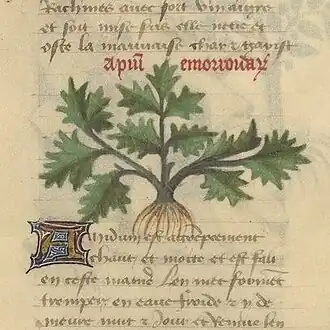 Rachines avec fort vin aigre
et soit mise sus elle netie et
oste la mauuaise char & garist
Apiũ emorroidaꝝ
Amidum est attrempeement
chaut et moite et est fait
en ceste maniẽ. Len met forment
tremper en eaue froide & y de
meure nuit & jour et